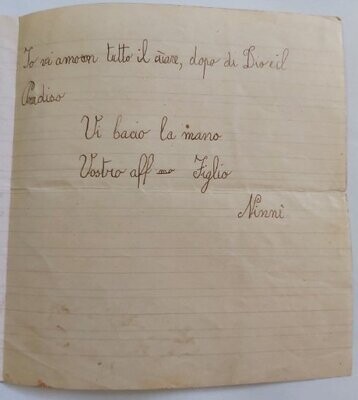 Io vi amo con tutto il cuore, dopo di Dio è il
Paradiso
Vi bacio la mano
Vostro aff mo Figlio
Ninnì